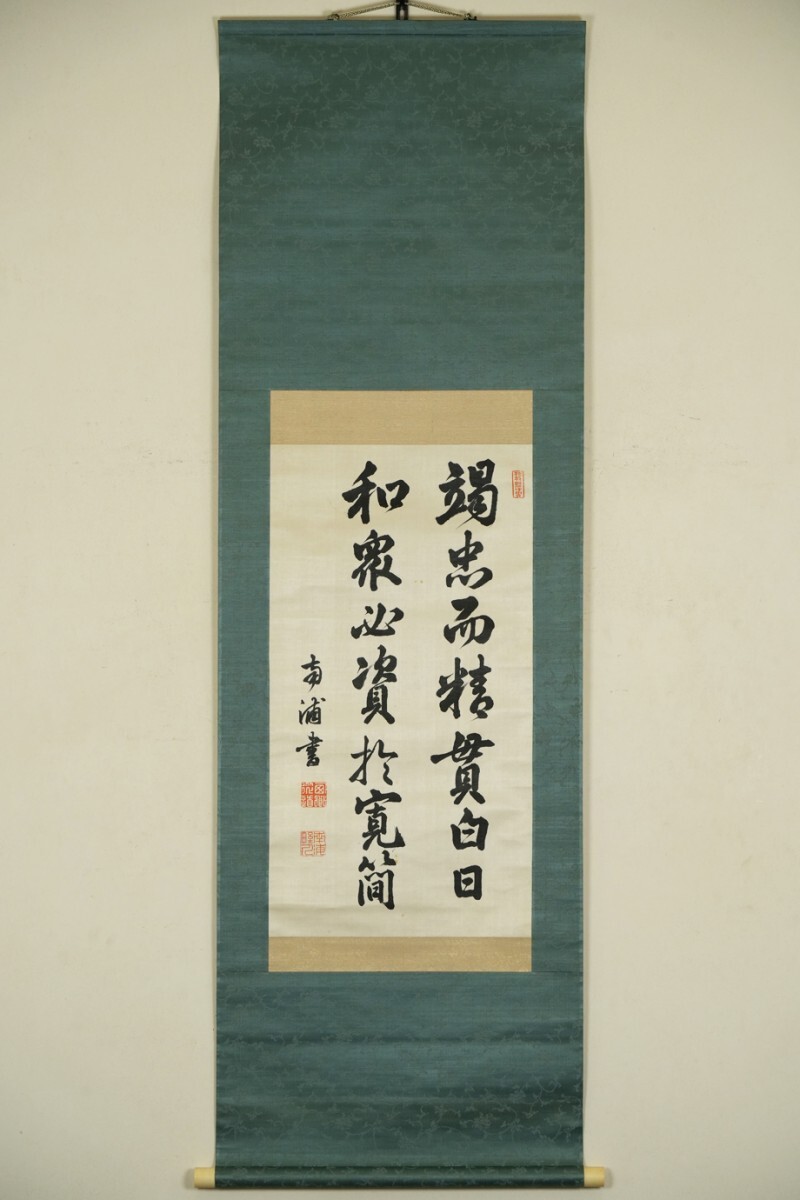 竭忠而精貫白日
和衆必資於寛簡
南浦書